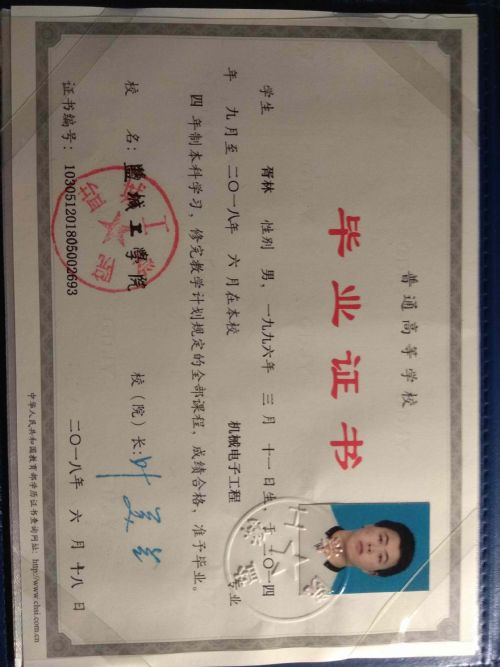 普通高等学校
毕业证书
学生 胥林 性别 男，一九九六年 三月 十一日生，于二〇一四
年 九月至二〇一八年 六月在本校 机械电子工程 专业
四 年制本科学习，修完教学计划规定的全部课程，成绩合格，准予毕业。
校 名：盐城工学院 校（院）长：
证书编号：103051201805002693 二〇一八年 六月 十八日
中华人民共和国教育部学历证书查询网站：http://www.chsi.com.cn